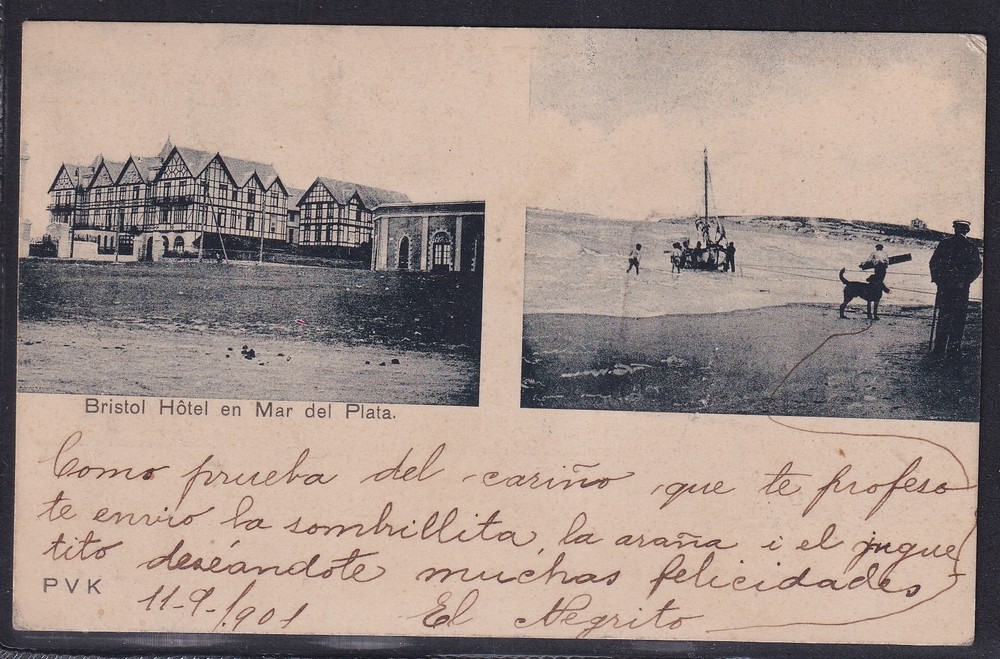 Bristol Hôtel en Mar del Plata.
Como prueba del cariño que te profeso
te envio la sombrillita, la araña i el jugue
tito deseándote muchas felicidades
PVK
11-9-/901 El Negrito